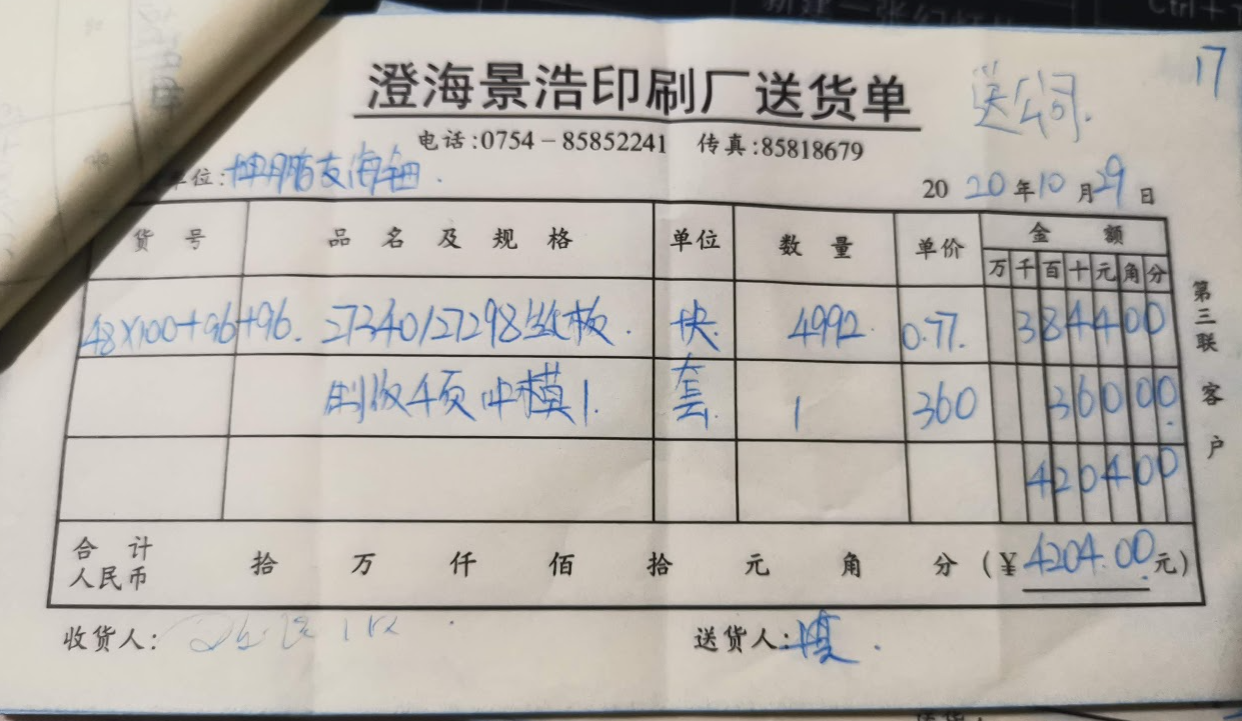 17
澄海景浩印刷厂送货单
送公司.
电话:0754-85852241 传真:85818679
单位:坤鹏友海钿.
2020年10月29日
货号 品名及规格 单位 数量 单价 金额
万千百十元角分
48×100+96+96. 27340/27298丝板. 块. 4992. 0.77. 384400
制版4页冲模1. 套. 1 360 36000.
420400
合计人民币 拾 万 仟 佰 拾 元 角 分 (¥4204.00元)
收货人: 送货人:
第三联 客户